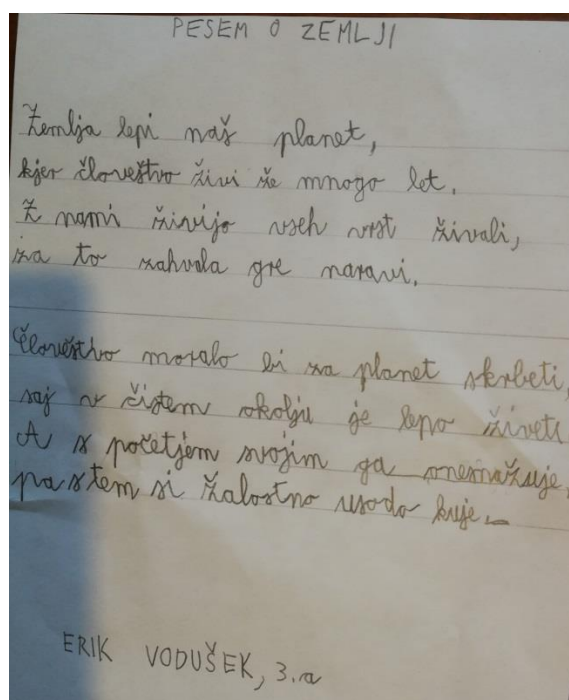 PESEM O ZEMLJI
Zemlja lepi naš planet,
kjer človeštvo živi že mnogo let.
Z nami živijo vseh vrst živali,
za to zahvala gre naravi.
Človeštvo moralo bi za planet skrbeti,
saj v čistem okolju je lepo živeti
A s početjem svojim ga onesnažuje,
pa s tem si žalostno usodo kuje.
ERIK VODUŠEK, 3.a